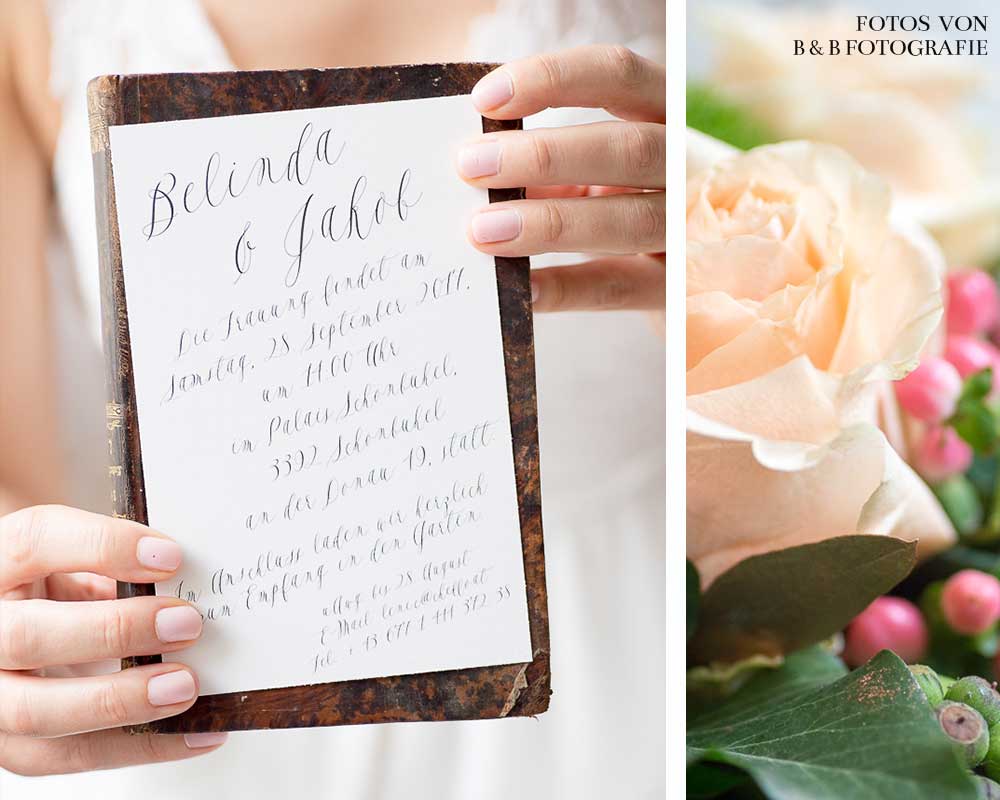 Belinda
& Jakob
Die Trauung findet am
Samstag, 28. September 2017,
um 14.00 Uhr
im Palais Schönbühel,
3392 Schönbühel
an der Donau 19, statt.
Im Anschluss laden wir herzlich
zum Empfang in den Garten
uAwg bis 28. August
E-Mail
Tel.
FOTOS VON
B & B FOTOGRAFIE